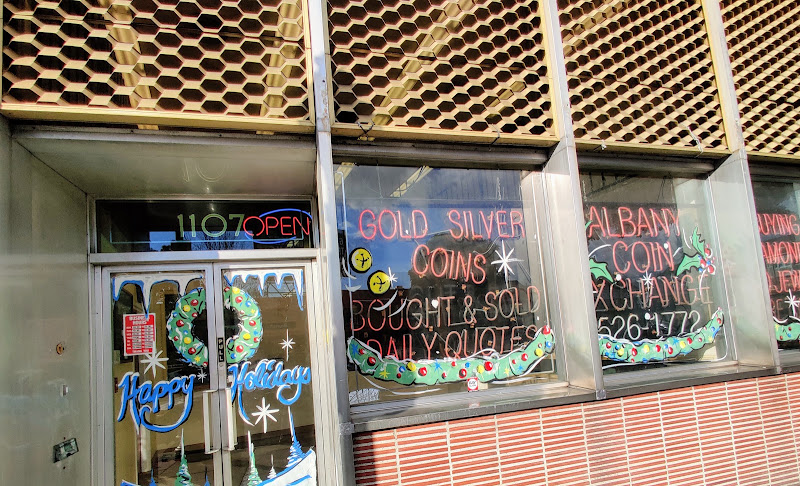 1107 OPEN
Happy Holidays
GOLD SILVER
COINS
BOUGHT & SOLD
DAILY QUOTES
ALBANY
COIN
XCHANGE
526-1772
UYING